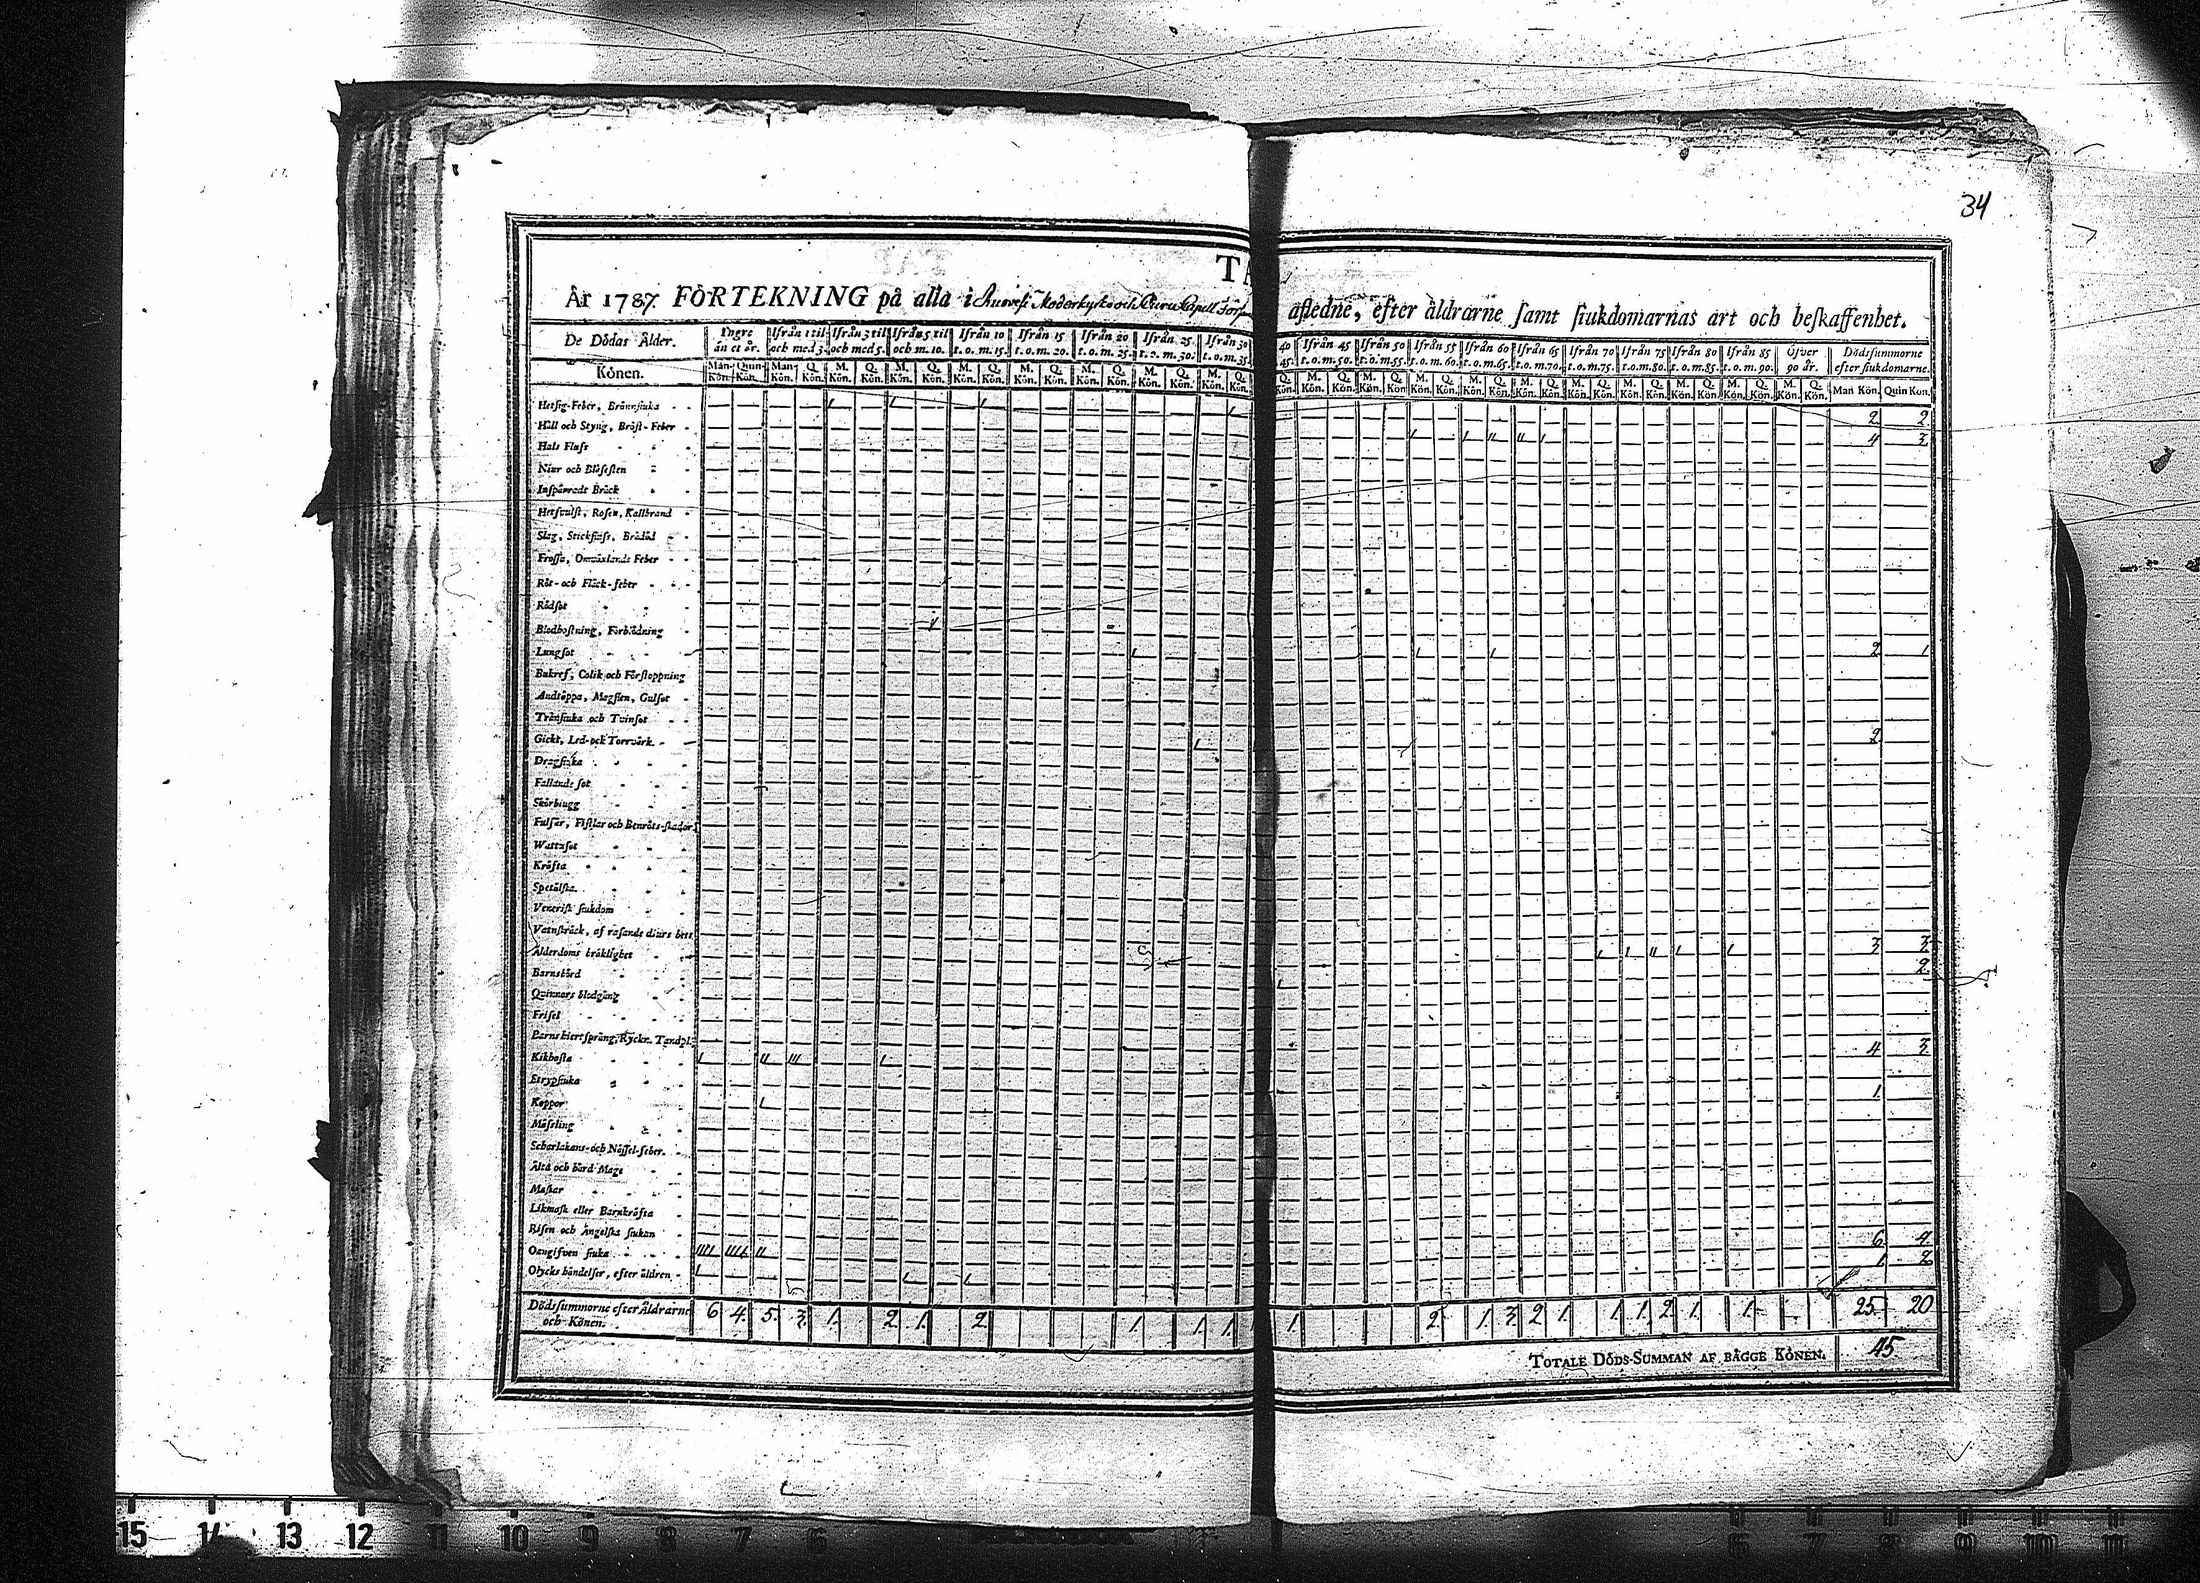 34
TA
År 1787. FÖRTEKNING på alla i Ruovesi Moderkyrko och Capell Förs afledne, efter åldrarne samt siukdomarnas art och beskaffenhet.
De Dödas Ålder. Yngre än et år. Ifrån 1 til och med 3. Ifrån 3 til och med 5. Ifrån 5 til och m. 10. Ifrån 10 t.o.m. 15. Ifrån 15 t.o.m. 20. Ifrån 20 t.o.m. 25. Ifrån 25 t.o.m. 30. Ifrån 30 t.o.m. 35. 40 45. Ifrån 45 t.o.m. 50. Ifrån 50 t.o.m. 55. Ifrån 55 t.o.m. 60. Ifrån 60 t.o.m. 65. Ifrån 65 t.o.m. 70. Ifrån 70 t.o.m. 75. Ifrån 75 t.o.m. 80. Ifrån 80 t.o.m. 85. Ifrån 85 t.o.m. 90. Öfver 90 år. Dödssummorne efter siukdomarne.
Könen. Man-Kön. Quin-Kön. Man-Kön. Q. Kön. M. Kön. Q. Kön. M. Kön. Q. Kön. M. Kön. Q. Kön. M. Kön. Q. Kön. M. Kön. Q. Kön. M. Kön. Q. Kön. M. Kön. Q. Kön. Q. Kön. M. Kön. Q. Kön. M. Kön. Q. Kön. M. Kön. Q. Kön. M. Kön. Q. Kön. M. Kön. Q. Kön. M. Kön. Q. Kön. M. Kön. Q. Kön. M. Kön. Q. Kön. M. Kön. Q. Kön. M. Kön. Q. Kön. Man Kön. Quin Kön.
Hetsig-Feber, Brännsiuka 2 2
Håll och Styng, Bröst-Feber 4 3
Hals Fluss
Niur och Blåsesten
Inspärradt Bråck
Hetsvulst, Rosen, Kallbrand
Slag, Stickfluss, Brådöd
Frossa, Omväxlande Feber
Röt- och Fläck-feber
Rödsot
Blodhostning, Förblödning
Lungsot 2 1
Bukref, Colik och Förstoppning
Andtäppa, Magsien, Gulsot
Tränsiuka och Tvinsot
Gickt, Led- och Torrvärk 2
Dragsiuka
Fallande sot
Skörbiugg
Fulsår, Fistlar och Benröts-skador
Wattusot
Kräfta
Spetälska
Venerisk siukdom
Vatnskräck, af rasande diurs bett
Ålderdoms bräklighet 3 3
Barnsbörd 2
Quinnors blodgång
Frisel
Barns hiertsprång, Ryckn. Tandpl.
Kikhosta 4 3
Strypsiuka
Koppor 1
Mässling
Scharlakans- och Nässel-feber.
Älta och hård Mage
Maskar
Likmask eller Barnkräfta
Risen och Ängelska siukan
Oangifven siuka 6 4
Olycks händelser, efter åldren 1 2
Dödssummorne efter Åldrarne och Könen. 6. 4. 5. 3. 1. 2. 1. 2. 1. 1. 1. 1. 2. 1. 3. 2. 1. 1. 1. 2. 1. 1. 25. 20
TOTALE DÖDS-SUMMAN AF BÄGGE KÖNEN. 45
15 14 13 12 11 10 9 8 7